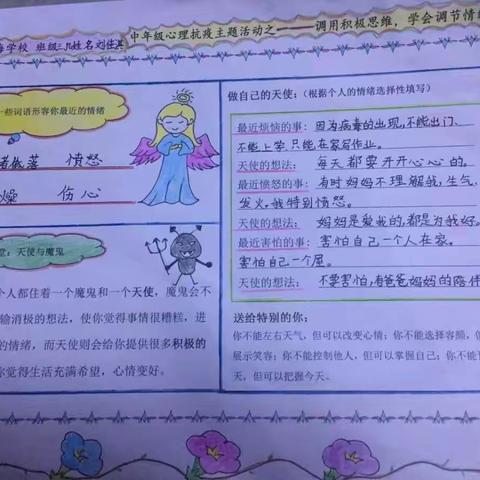 海学校 班级三八姓名刘佳淇
中年级心理抗疫主题活动之——调用积极思维，学会调节情绪
一些词语形容你最近的情绪
绪低落 愤怒
燥 伤心
做自己的天使：（根据个人的情绪选择性填写）
最近烦恼的事：因为病毒的出现，不能出门、
不能上学.只能在家写作业。
天使的想法：每天都要开开心心的。
最近愤怒的事：有时妈妈不理解我，生气、
发火。我特别愤怒。
天使的想法：妈妈是爱我的，都是为我好。
最近害怕的事：害怕自己一个人在家。
害怕自己一个屋。
天使的想法：不要害怕，有爸爸妈妈的陪伴
：天使与魔鬼
个人都住着一个魔鬼和一个天使，魔鬼会不
输消极的想法，使你觉得事情很糟糕，进
的情绪，而天使则会给你提供很多积极的
你觉得生活充满希望，心情变好。
送给特别的你：
你不能左右天气，但可以改变心情；你不能选择容颜，但
展示笑容；你不能控制他人，但可以掌握自己；你不能
天，但可以把握今天。